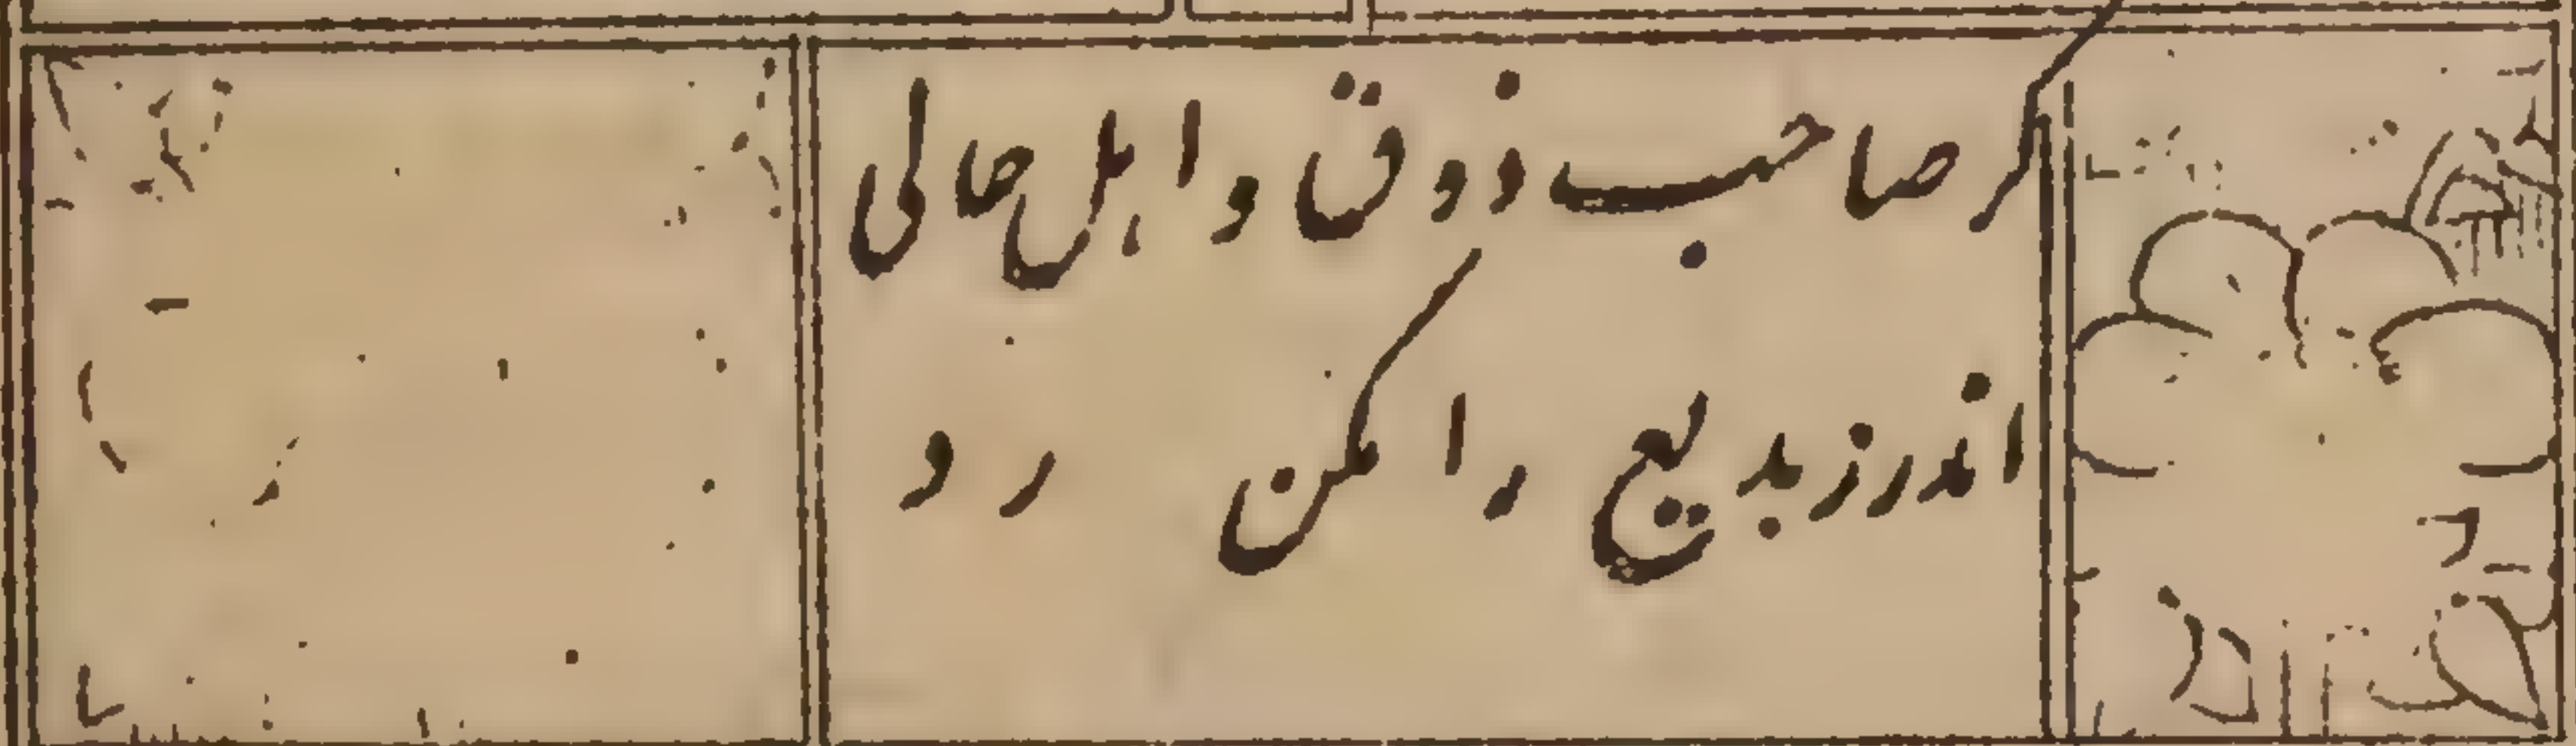 گر صاحب ذوق و اهل حالی
اندرز بدیع را مکن رد